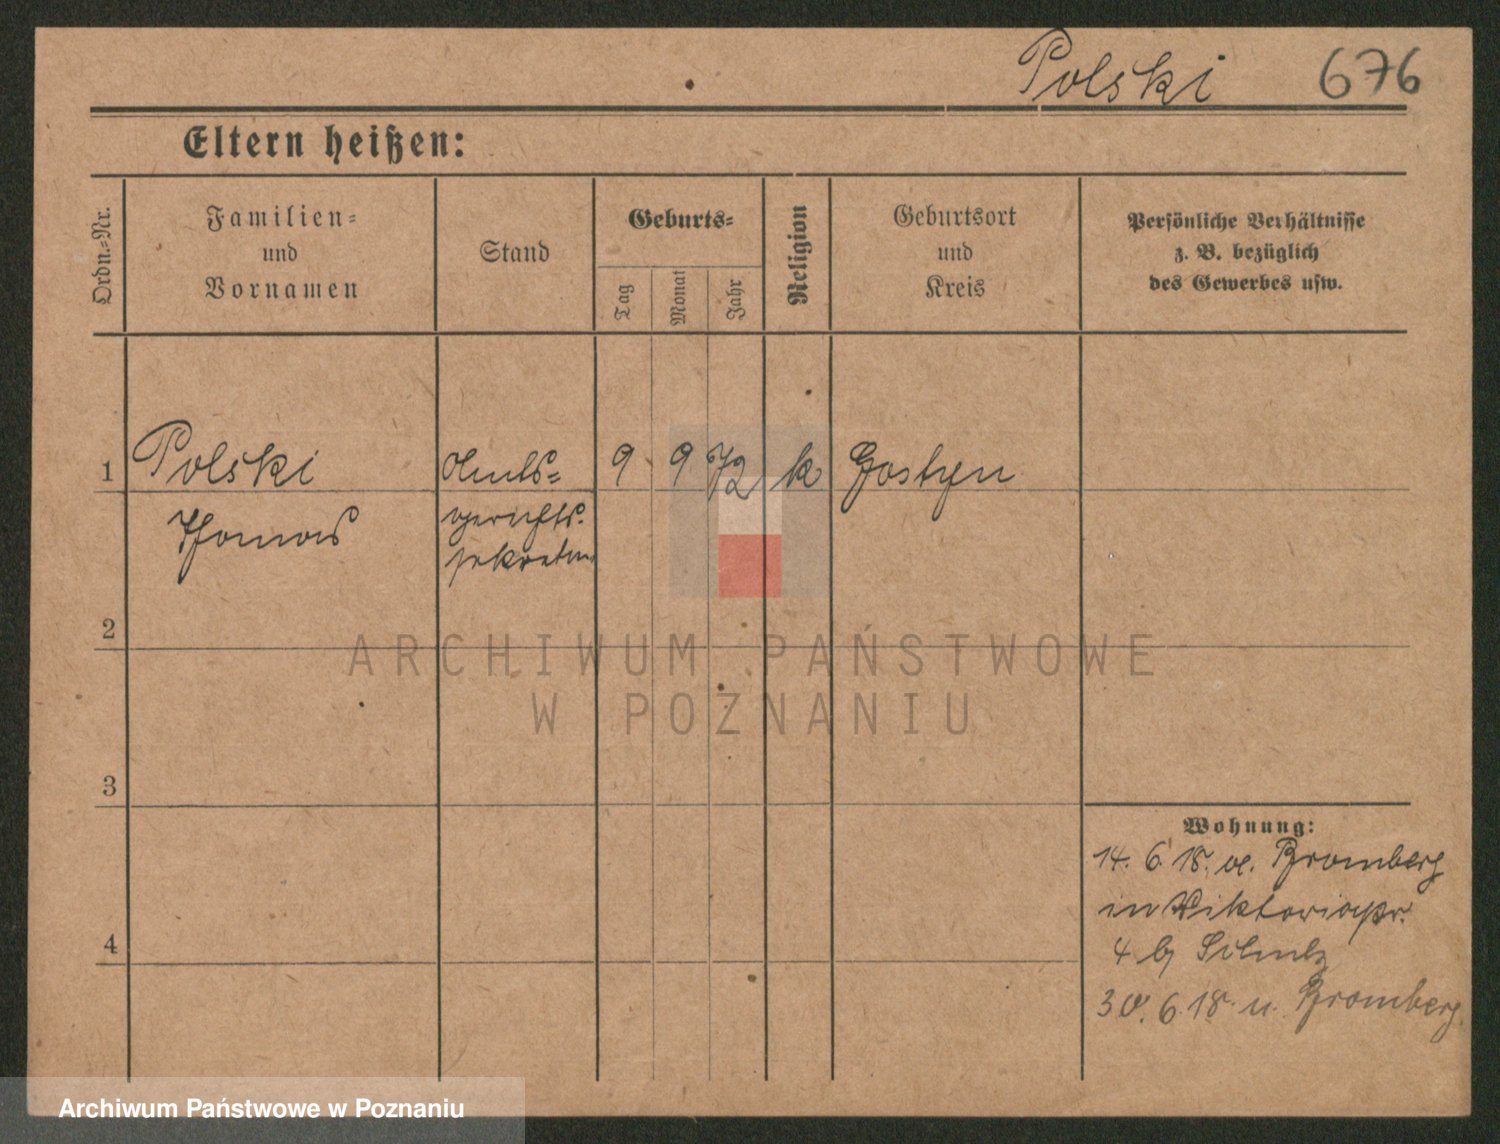 Polski 676
Eltern heißen:
Ordn.=Nr.
Familien=
und
Vornamen
Stand
Geburts=
Tag
Monat
Jahr
Religion
Geburtsort
und
Kreis
Persönliche Verhältnisse
z. B. bezüglich
des Gewerbes usw.
1 Polski Amts= 9 9 72 k Gostyn
Thomas gerichts-
sekretär
2
ARCHIWUM PAŃSTWOWE
W POZNANIU
3
Wohnung:
14. 6 18. v. Bromberg
in Viktoriastr.
4 b/ Schulz
4
30. 6. 18. n. Bromberg
Archiwum Państwowe w Poznaniu